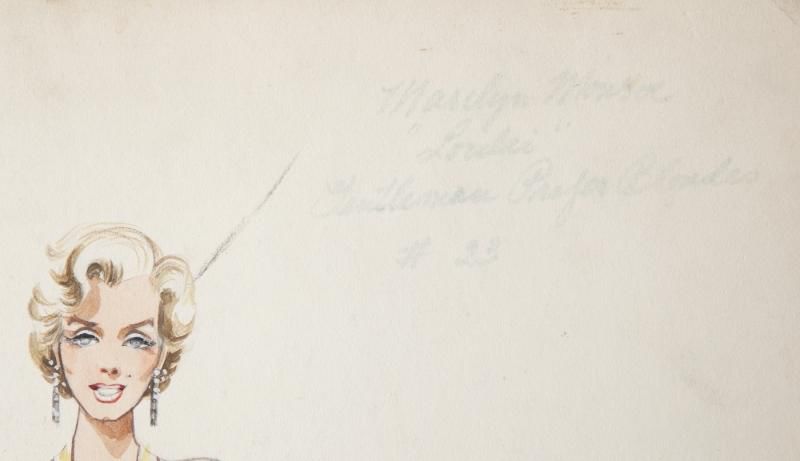 Marilyn Monroe
"Lorelei"
Gentleman Prefer Blondes
# 23